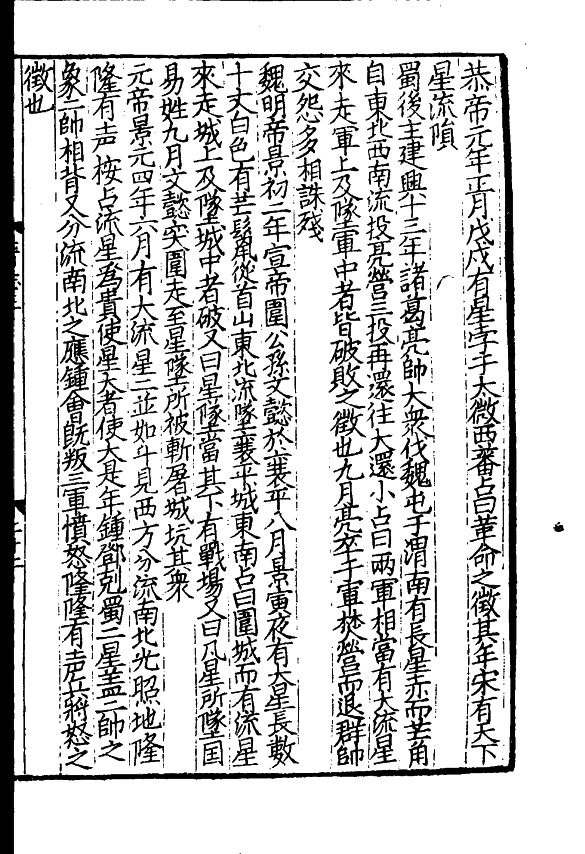 恭帝元年正月戊戍有星孛于太微西蕃占曰革命之徵其年宋有天下
星流隕
蜀後主建興十三年諸葛亮帥大衆伐魏屯于渭南有長星赤而芒角
自東北西南流投亮營三投再還往大還小占曰兩軍相當有大流星
來走軍上及墜軍中者皆破敗之徵也九月亮卒于軍焚營而退群帥
交怨多相誅殘
魏明帝景初二年宣帝圍公孫文懿於襄平八月景寅夜有大星長數
十丈白色有芒鬣從首山東北流墜襄平城東南占曰圍城而有流星
來走城上及墜城中者破又曰星墜當其下有戰場又曰凡星所墜国
易姓九月文懿突圍走至星墜所被斬屠城坑其衆
元帝景元四年六月有大流星二並如斗見西方分流南北光照地隆
隆有声按占流星爲貴使星大者使大是年鍾鄧剋蜀二星盖二帥之
象二帥相背又分流南北之應鍾會既叛三軍憤怒隆隆有声兵將怒之
徵也